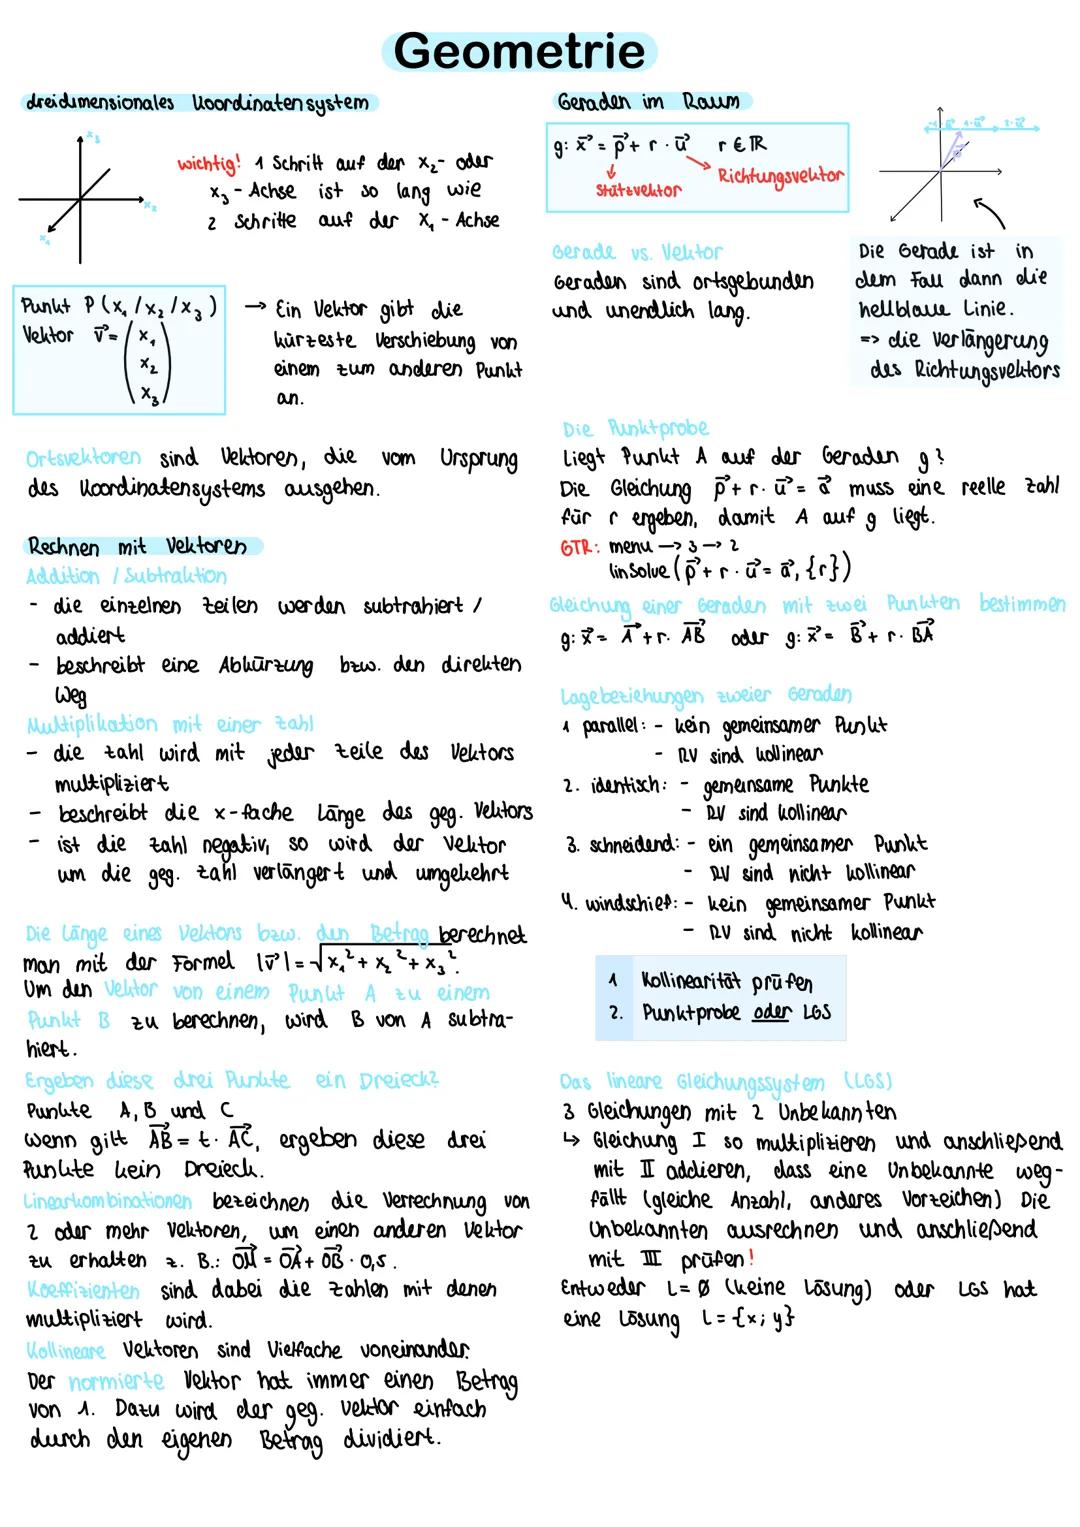 Geometrie
dreidimensionales Koordinatensystem
x₃
x₂
x₁
wichtig! 1 Schritt auf der x₂- oder
x₃ - Achse ist so lang wie
2 Schritte auf der x₁ - Achse
Punkt P (x₁ / x₂ / x₃)
Vektor v⃗ = (x₁
x₂
x₃)
→ Ein Vektor gibt die
kürzeste Verschiebung von
einem zum anderen Punkt
an.
Ortsvektoren sind Vektoren, die vom Ursprung
des Koordinatensystems ausgehen.
Rechnen mit Vektoren
Addition / Subtraktion
- die einzelnen Zeilen werden subtrahiert /
addiert
- beschreibt eine Abkürzung bzw. den direkten
Weg
Multiplikation mit einer Zahl
- die Zahl wird mit jeder Zeile des Vektors
multipliziert
- beschreibt die x-fache Länge des geg. Vektors
- ist die Zahl negativ, so wird der Vektor
um die geg. Zahl verlängert und umgekehrt
Die Länge eines Vektors bzw. den Betrag berechnet
man mit der Formel |v⃗| = √x₁² + x₂² + x₃².
Um den Vektor von einem Punkt A zu einem
Punkt B zu berechnen, wird B von A subtra-
hiert.
Ergeben diese drei Punkte ein Dreieck?
Punkte A, B und C
Wenn gilt AB⃗ = t · AC⃗, ergeben diese drei
Punkte kein Dreieck.
Linearkombinationen bezeichnen die Verrechnung von
2 oder mehr Vektoren, um einen anderen Vektor
zu erhalten z. B.: OM⃗ = OA⃗ + OB⃗ · 0,5.
Koeffizienten sind dabei die Zahlen mit denen
multipliziert wird.
Kollineare Vektoren sind Vielfache voneinander.
Der normierte Vektor hat immer einen Betrag
von 1. Dazu wird der geg. Vektor einfach
durch den eigenen Betrag dividiert.
Geraden im Raum
g: x⃗ = p⃗ + r · u⃗ r ∈ ℝ
Stützvektor
Richtungsvektor
-1·u⃗ 1·u⃗ 2·u⃗
Gerade vs. Vektor
Geraden sind ortsgebunden
und unendlich lang.
Die Gerade ist in
dem Fall dann die
hellblaue Linie.
=> die Verlängerung
des Richtungsvektors
Die Punktprobe
Liegt Punkt A auf der Geraden g?
Die Gleichung p⃗ + r · u⃗ = a⃗ muss eine reelle Zahl
für r ergeben, damit A auf g liegt.
GTR: menu → 3 → 2
linSolve (p⃗ + r · u⃗ = a⃗, {r})
Gleichung einer Geraden mit zwei Punkten bestimmen
g: x⃗ = A⃗ + r · AB⃗ oder g: x⃗ = B⃗ + r · BA⃗
Lagebeziehungen zweier Geraden
1 parallel: - kein gemeinsamer Punkt
- RV sind kollinear
2. identisch: - gemeinsame Punkte
- RV sind kollinear
3. schneidend: - ein gemeinsamer Punkt
- RV sind nicht kollinear
4. windschief: - kein gemeinsamer Punkt
- RV sind nicht kollinear
1 Kollinearität prüfen
2. Punktprobe oder LGS
Das lineare Gleichungssystem (LGS)
3 Gleichungen mit 2 Unbekannten
↳ Gleichung I so multiplizieren und anschließend
mit II addieren, dass eine Unbekannte weg-
fällt (gleiche Anzahl, anderes Vorzeichen) Die
Unbekannten ausrechnen und anschließend
mit III prüfen!
Entweder L = Ø (keine Lösung) oder LGS hat
eine Lösung L = {x; y}